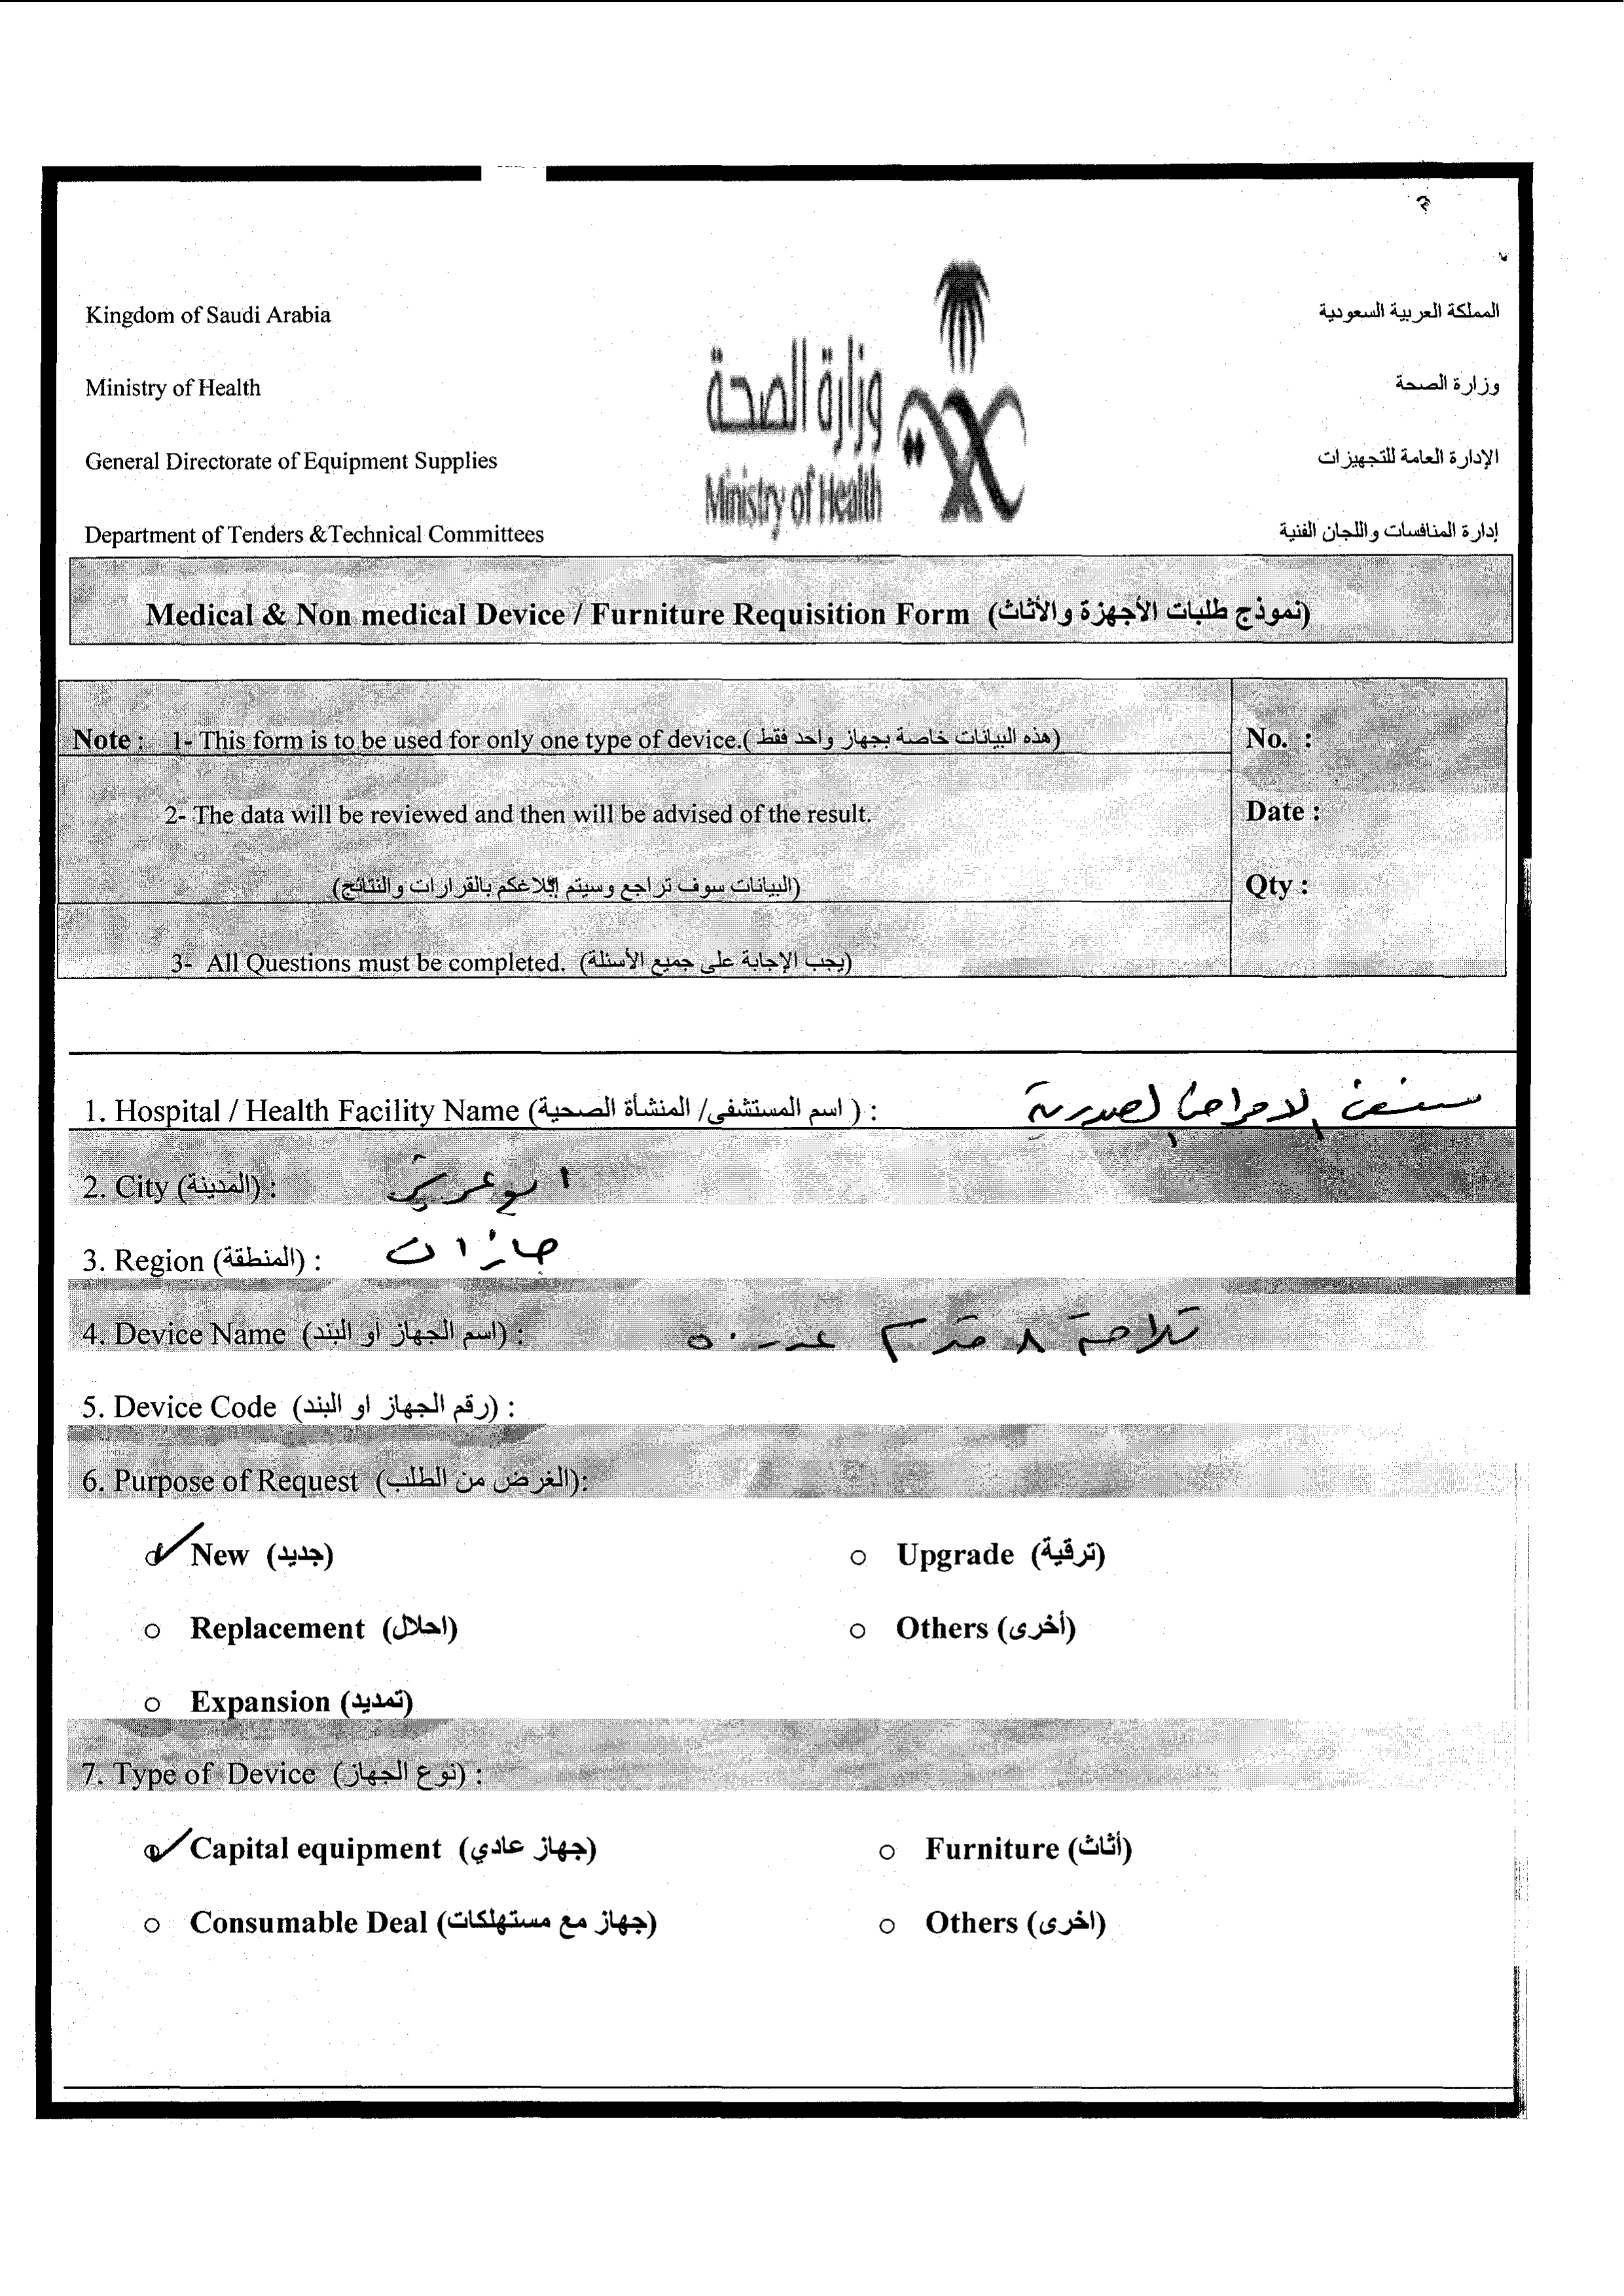 Kingdom of Saudi Arabia
المملكة العربية السعودية
Ministry of Health
وزارة الصحة
General Directorate of Equipment Supplies
الإدارة العامة للتجهيزات
Department of Tenders &Technical Committees
إدارة المنافسات واللجان الفنية
وزارة الصحة
Ministry of Health
Medical & Non medical Device / Furniture Requisition Form (نموذج طلبات الأجهزة والأثاث)
Note : 1- This form is to be used for only one type of device.(هذه البيانات خاصة بجهاز واحد فقط)
No. :
2- The data will be reviewed and then will be advised of the result.
Date :
(البيانات سوف تراجع وسيتم إبلاغكم بالقرارات والنتائج)
Qty :
3- All Questions must be completed. (يجب الإجابة على جميع الأسئلة)
1. Hospital / Health Facility Name (اسم المستشفى/ المنشأة الصحية ) : الصدرية
2. City (المدينة) : ابو عريش
3. Region (المنطقة) : جازان
4. Device Name (اسم الجهاز او البند) : ثلاجة ٨ قدم عدد
5. Device Code (رقم الجهاز او البند) :
6. Purpose of Request (الغرض من الطلب):
New (جديد)
Upgrade (ترقية)
Replacement (احلال)
Others (أخرى)
Expansion (تمديد)
7. Type of Device (نوع الجهاز) :
Capital equipment (جهاز عادي)
Furniture (أثاث)
Consumable Deal (جهاز مع مستهلكات)
Others (اخرى)